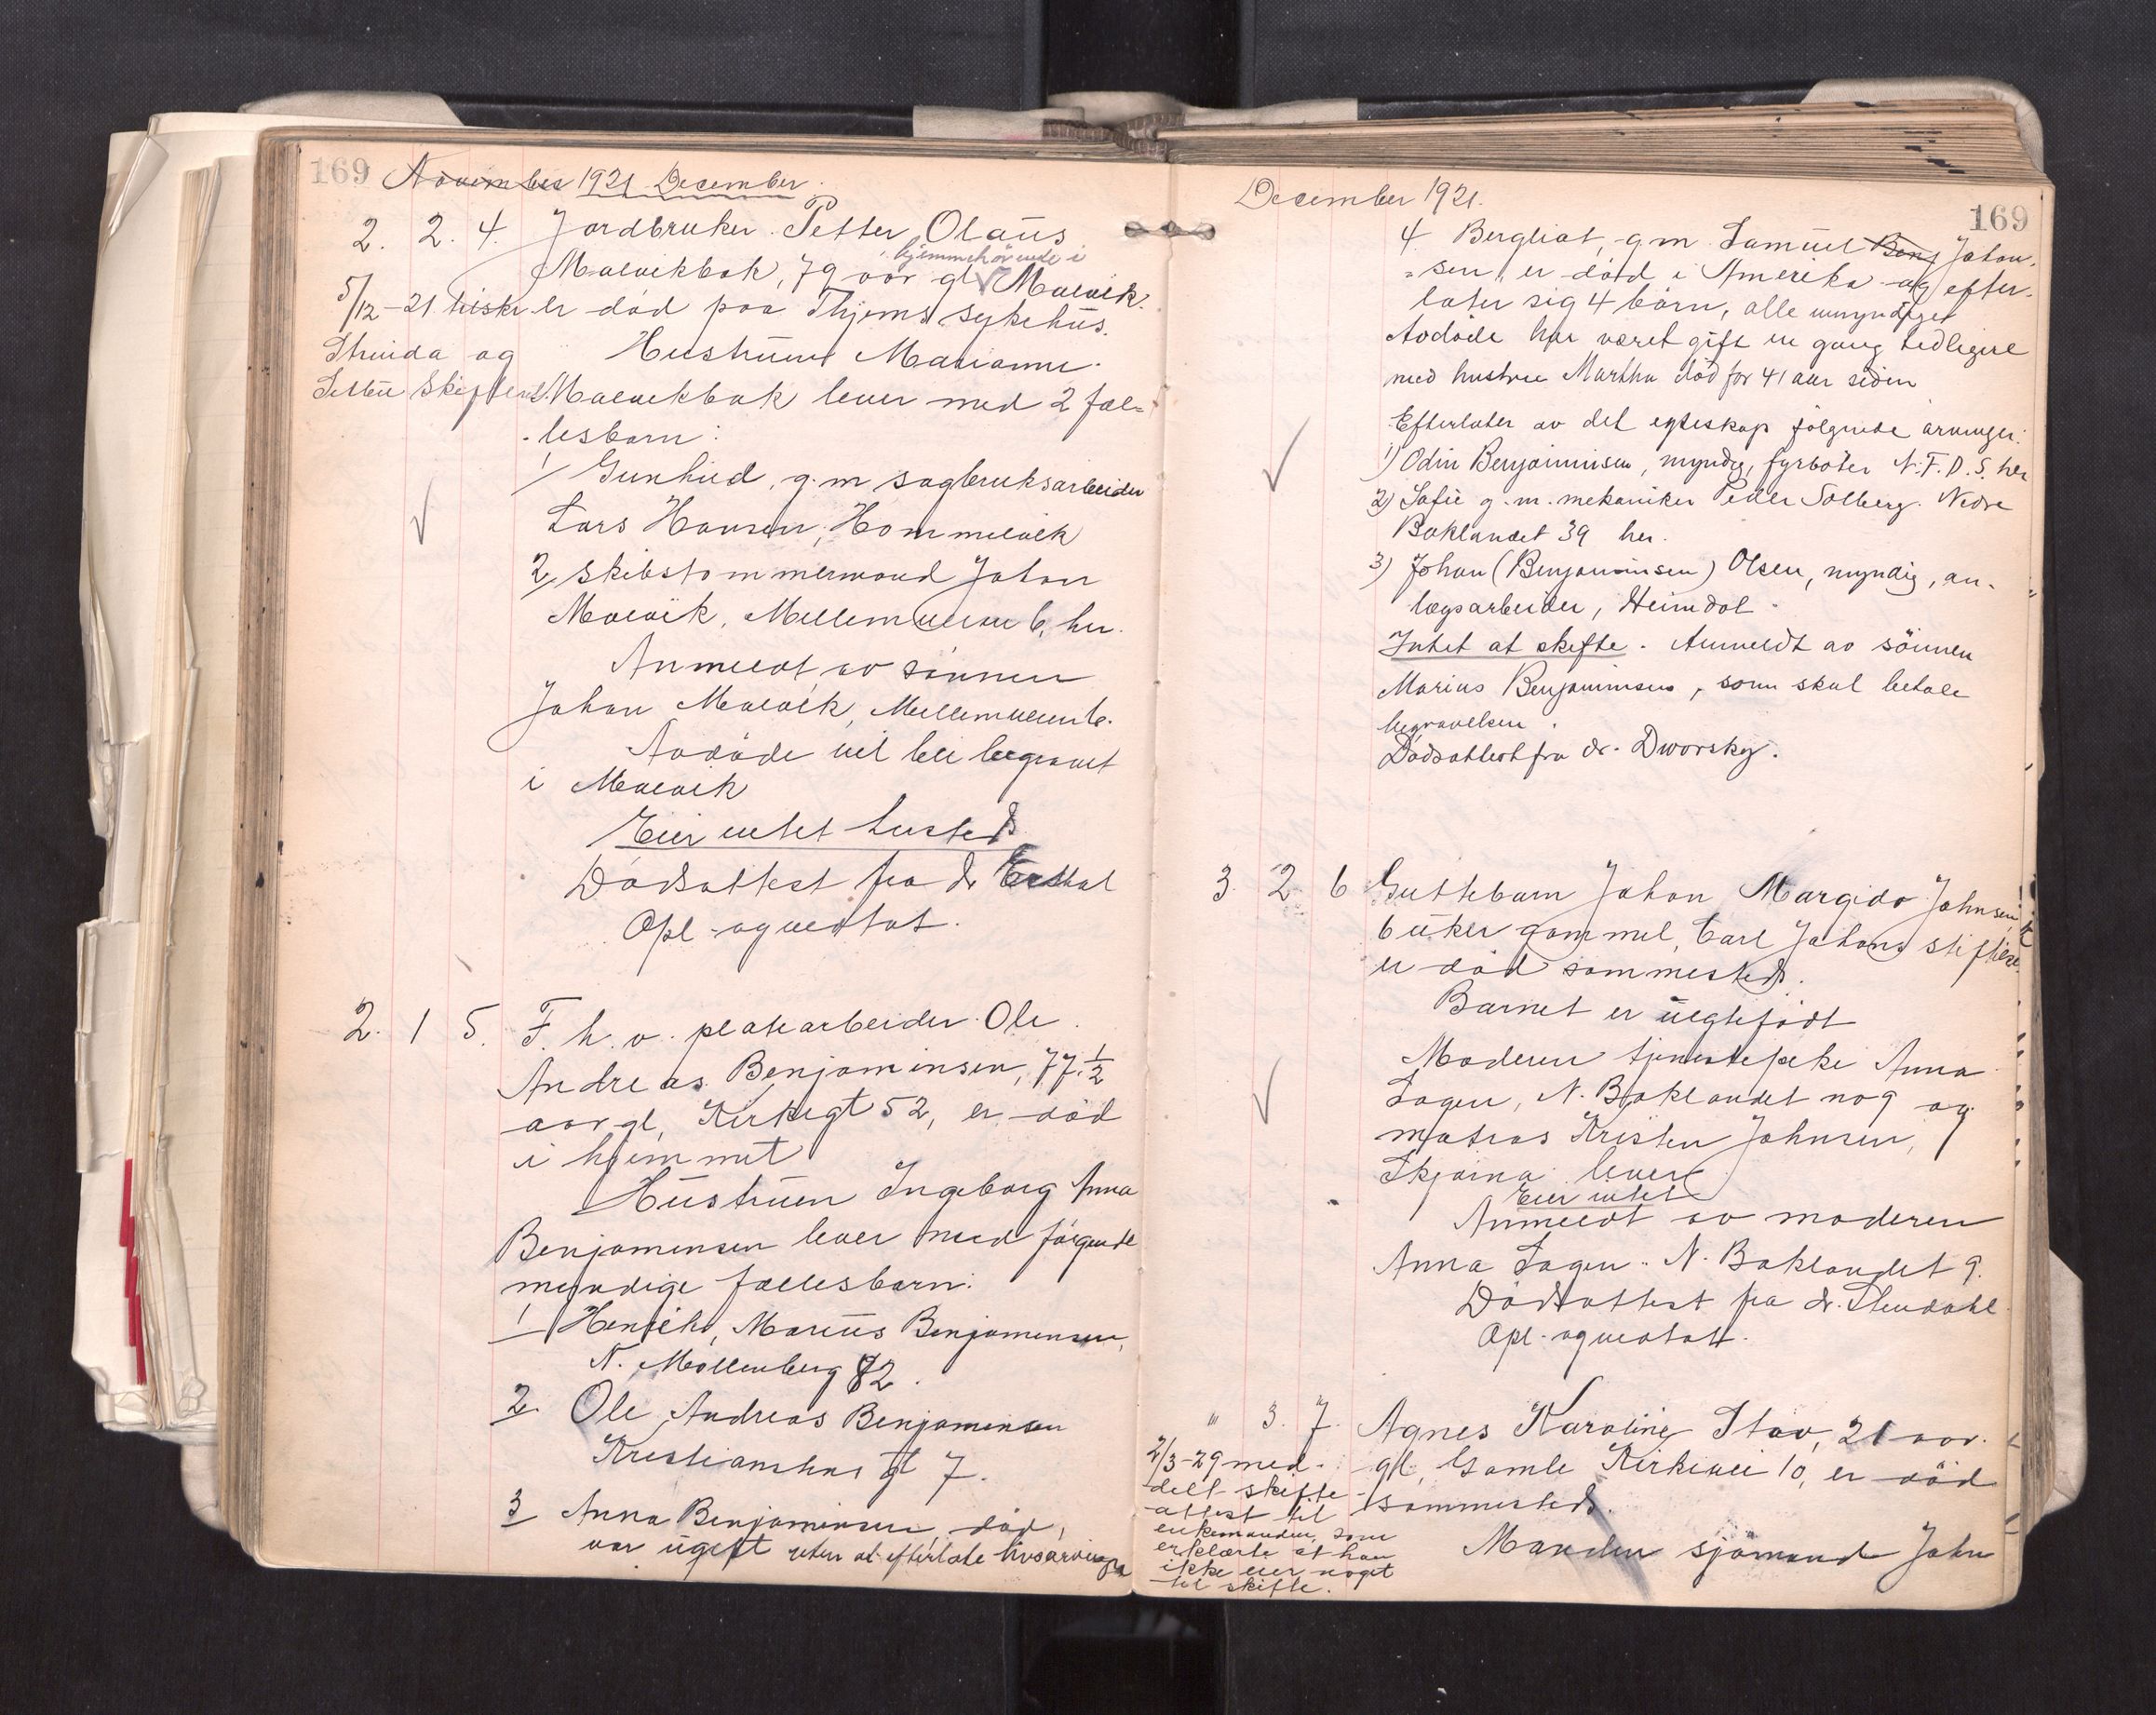 169 November 1921 December.
2. 2. 4. Jordbruker Petter Olaus
hjemmehörende i
Malvikbak, 79 aar gl Malvik.
5/12-21 tilskr. er död paa Thjems sykehus.
Strinda og Hustruen Marianne
Selbu skifteret. Malvikbak lever med 2 fæl-
lesbarn:
1/ Gunhild, g.m sagbruksarbeider
Lars Hansen, Hommelvik
2/ Skibstømmermand Johan
Malvik, Mellemveien 6, her.
Anmeldt av sønnen
Johan Malvik, Mellemveien 6.
Avdöde vil bli begravet
i Malvik
Eier intet hersteds
Dödsattest fra dr
Opl. og vedtat.
2. 1 5. F. h. v. platearbeider Ole
Andreas Benjaminsen, 77 1/2
aar gl, Kirkegt 52, er död
i hjemmet
Hustruen Ingeborg Anna
Benjaminsen lever med fölgende
myndige fællesbarn:
1 Henrik Marius Benjaminsen,
N. Möllenberg 82.
2. Ole Andreas Benjaminsen
Kristianstens gt 7.
3 Anna Benjaminsen, död,
var ugift uten at efterlate livsarvinger
December 1921.
169
4 Bergliot, g.m Samuel Benj Johan-
sen, er död i Amerika og efter-
later sig 4 börn, alle umyndiger
Avdöde har været gift en gang tidligere
med hustru Martha död for 41 aar siden
Efterlater av det egteskap fölgende arvinger:
1) Odin Benjaminsen, myndig, fyrböter N.F.D.S. her
2) Sofie g.m. mekaniker Peder Solberg. Nedre
Baklandet 39 her.
3) Johan (Benjaminsen) Olsen, myndig, an-
lægsarbeider, Heimdal.
Intet at skifte. Anmeldt av sönnen
Marius Benjaminsen, som skal betale
begravelsen.
Dödsattest fra dr. Dworsky.
3. 2. 6 Guttebarn Johan Margido Johnsen,
6 uker gammel, Carl Johans stiftelse
er död sammesteds.
Barnet er uegtefödt
Moderen tjenestepike Anna
Sagen, N. Baklandet no 9 og
matros Kristen Johnsen,
lever
Eier intet
Anmeldt av moderen
Anna Sagen. N. Baklandet 9.
Dödsattest fra dr. Stendahl
Opl. og vedtat.
" 3. 7. Agnes Karoline Stav, 21 aar
2/3-29 med- gl, Gamle Kirkevei 10, er död
delt skifte- sammesteds.
attest til
enkemanden, som
erklærte at han Manden sjömand John
ikke eier noget
til skifte.